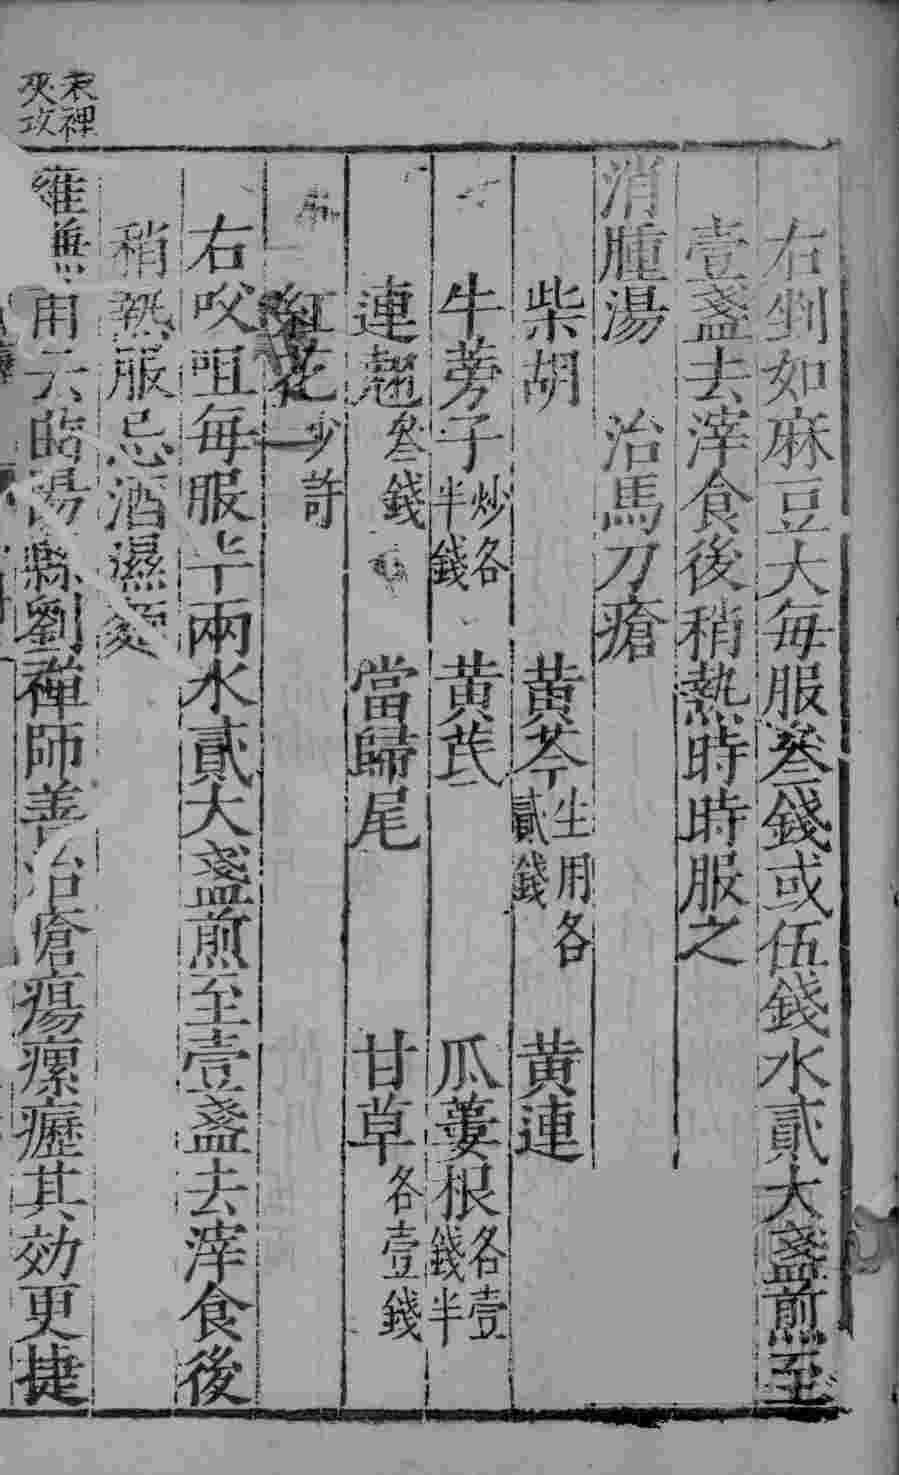 表裡夾攻
右剉如麻豆大每服叄錢或伍錢水貳大盞煎至
壹盞去滓食後稍熱時時服之
消腫湯 治馬刀瘡
柴胡 黄芩生用各貳錢 黄連
牛蒡子炒各半錢 黄芪 瓜蔞根各壹錢半
連翹叄錢 當歸尾 甘草各壹錢
紅花少許
右㕮咀每服半兩水貳大盞煎至壹盞去滓食後
稍熱服忌酒濕麵
羅無用云臨陽縣劉禅師善治瘡瘍瘰癧其効更捷